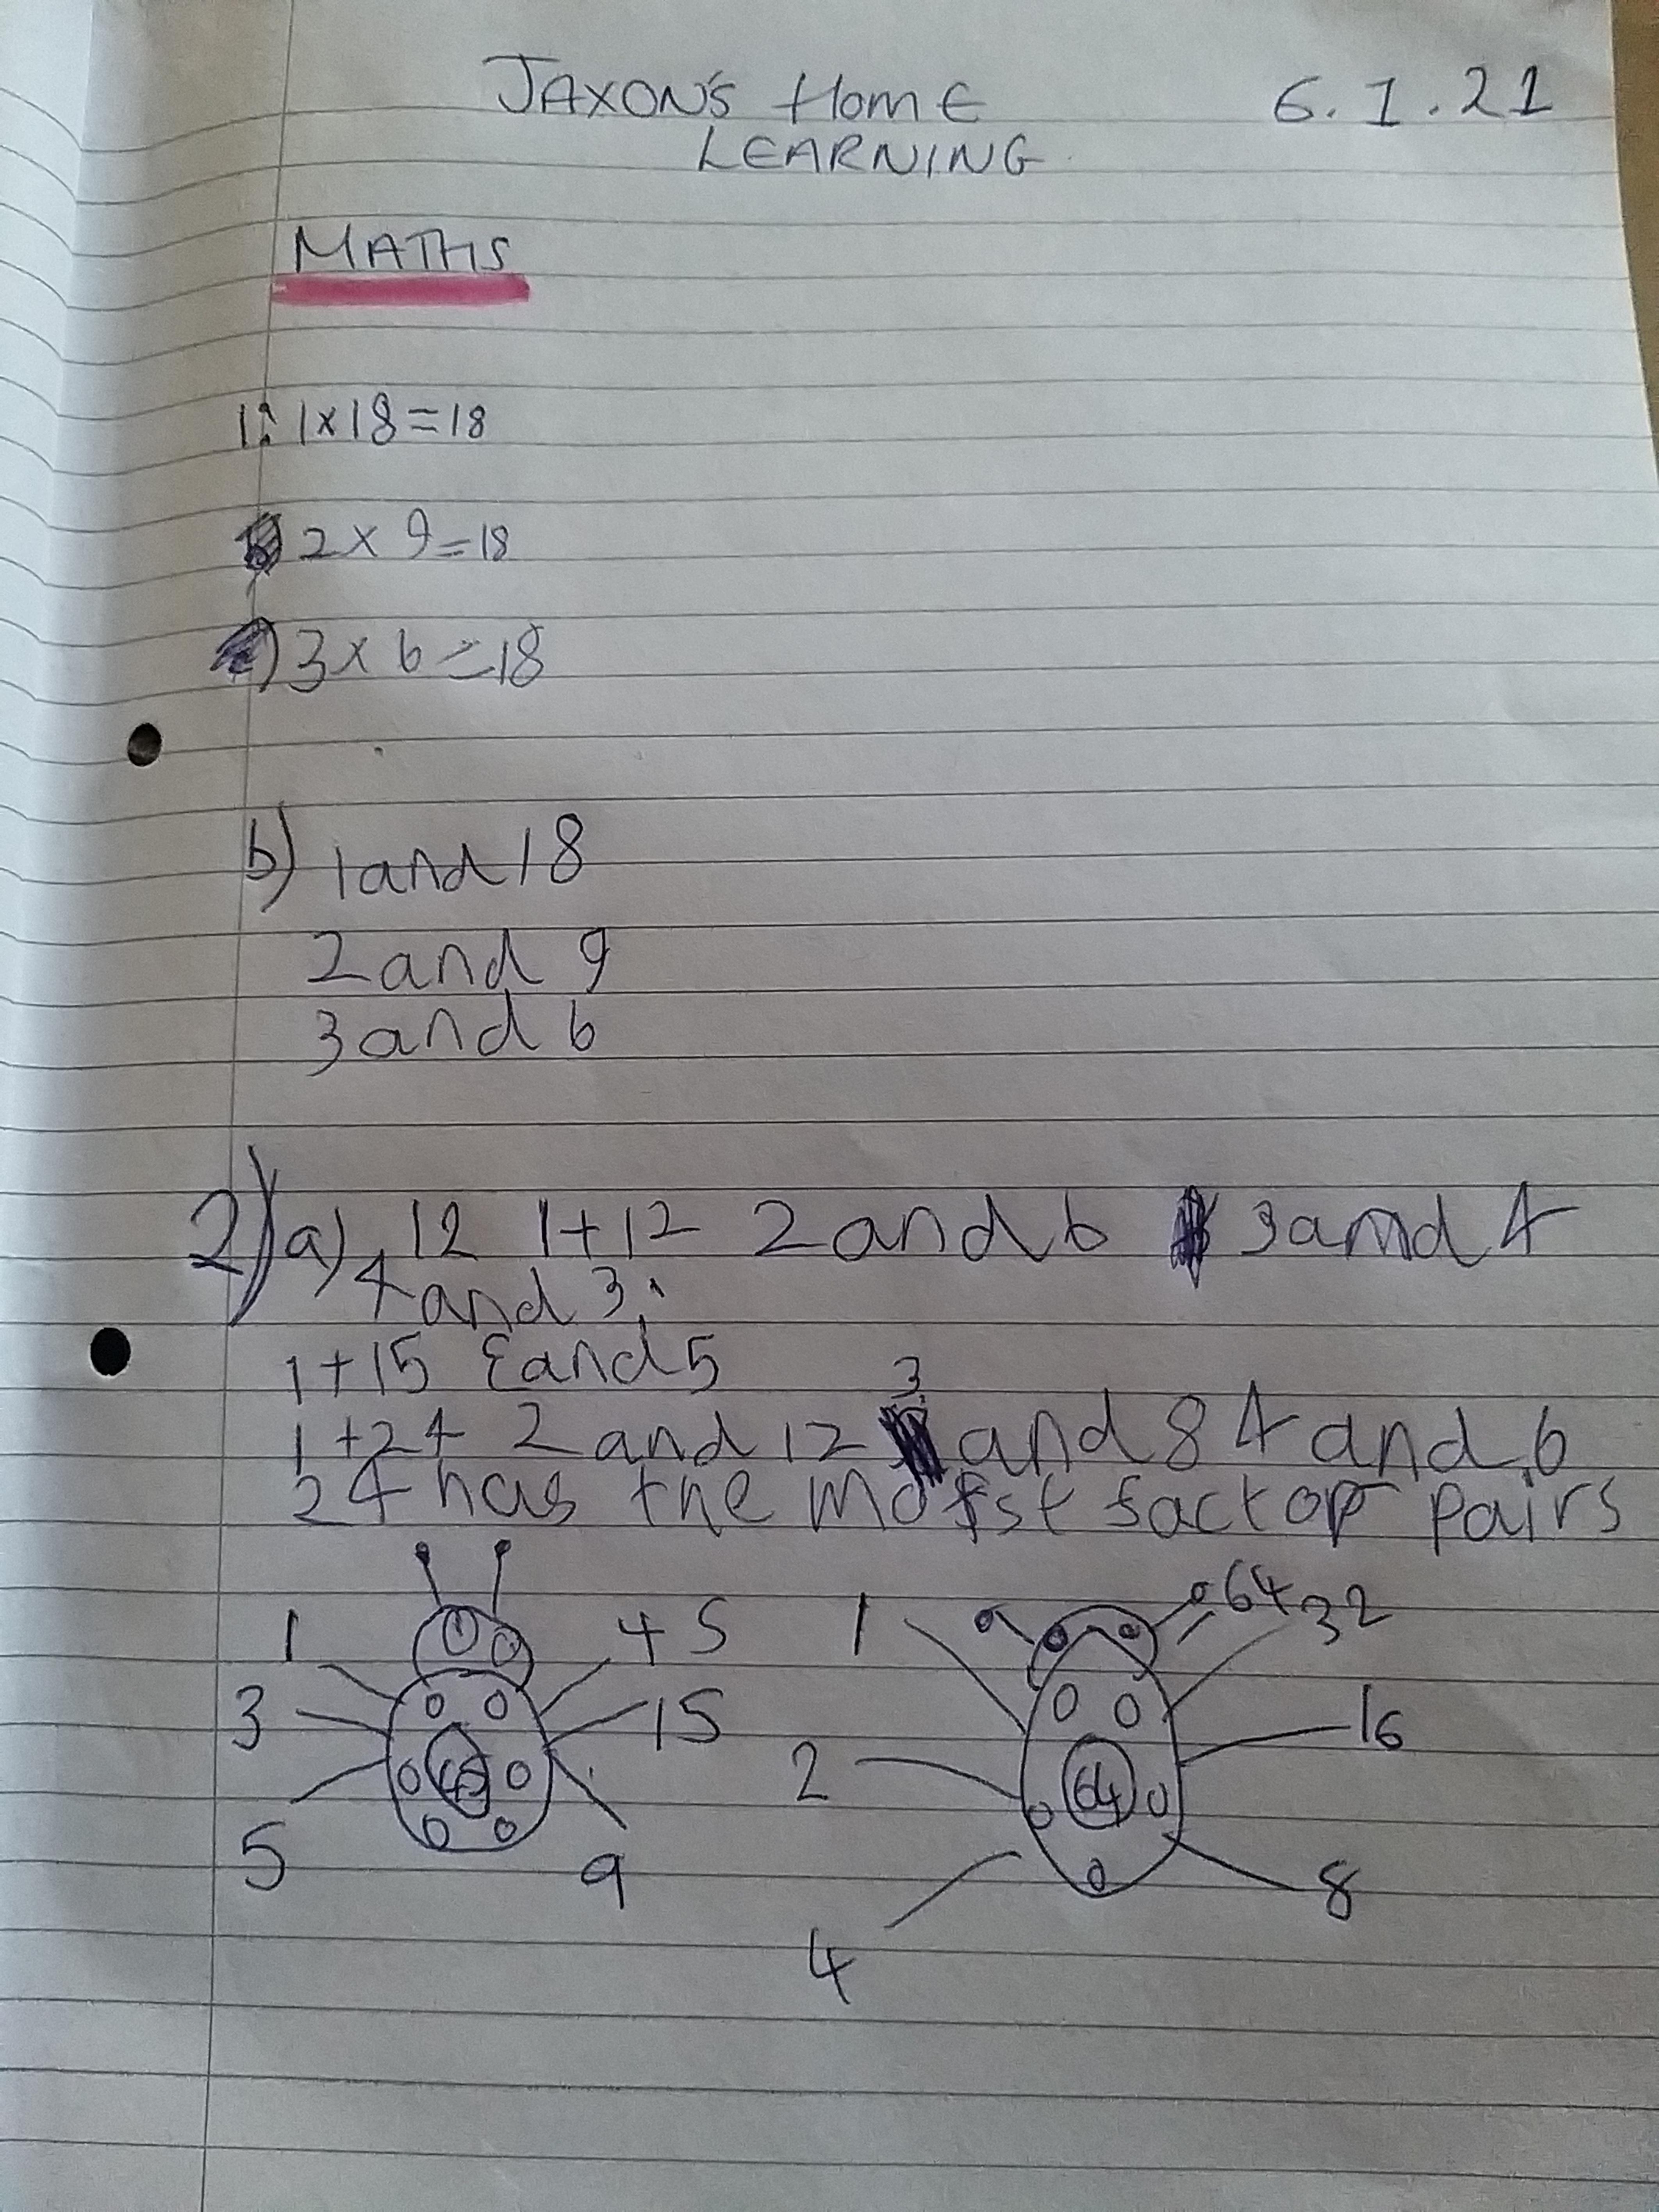 JAXON'S HomE 6.1.21
LEARNING
MATHS
1: 1x18=18
2 x 9=18
) 3 x 6=18
b) 1 and 18
2 and 9
3 and 6
2) a) 12 1+12 2 and 6 3 amd 4
4 and 3.
1+15 3 and 5
3
1+24 2 and 12 and 8 4 and 6
24 has the most factor pairs
1 45 1 64 32
3 15 16
45 2 64
5 9 8
4